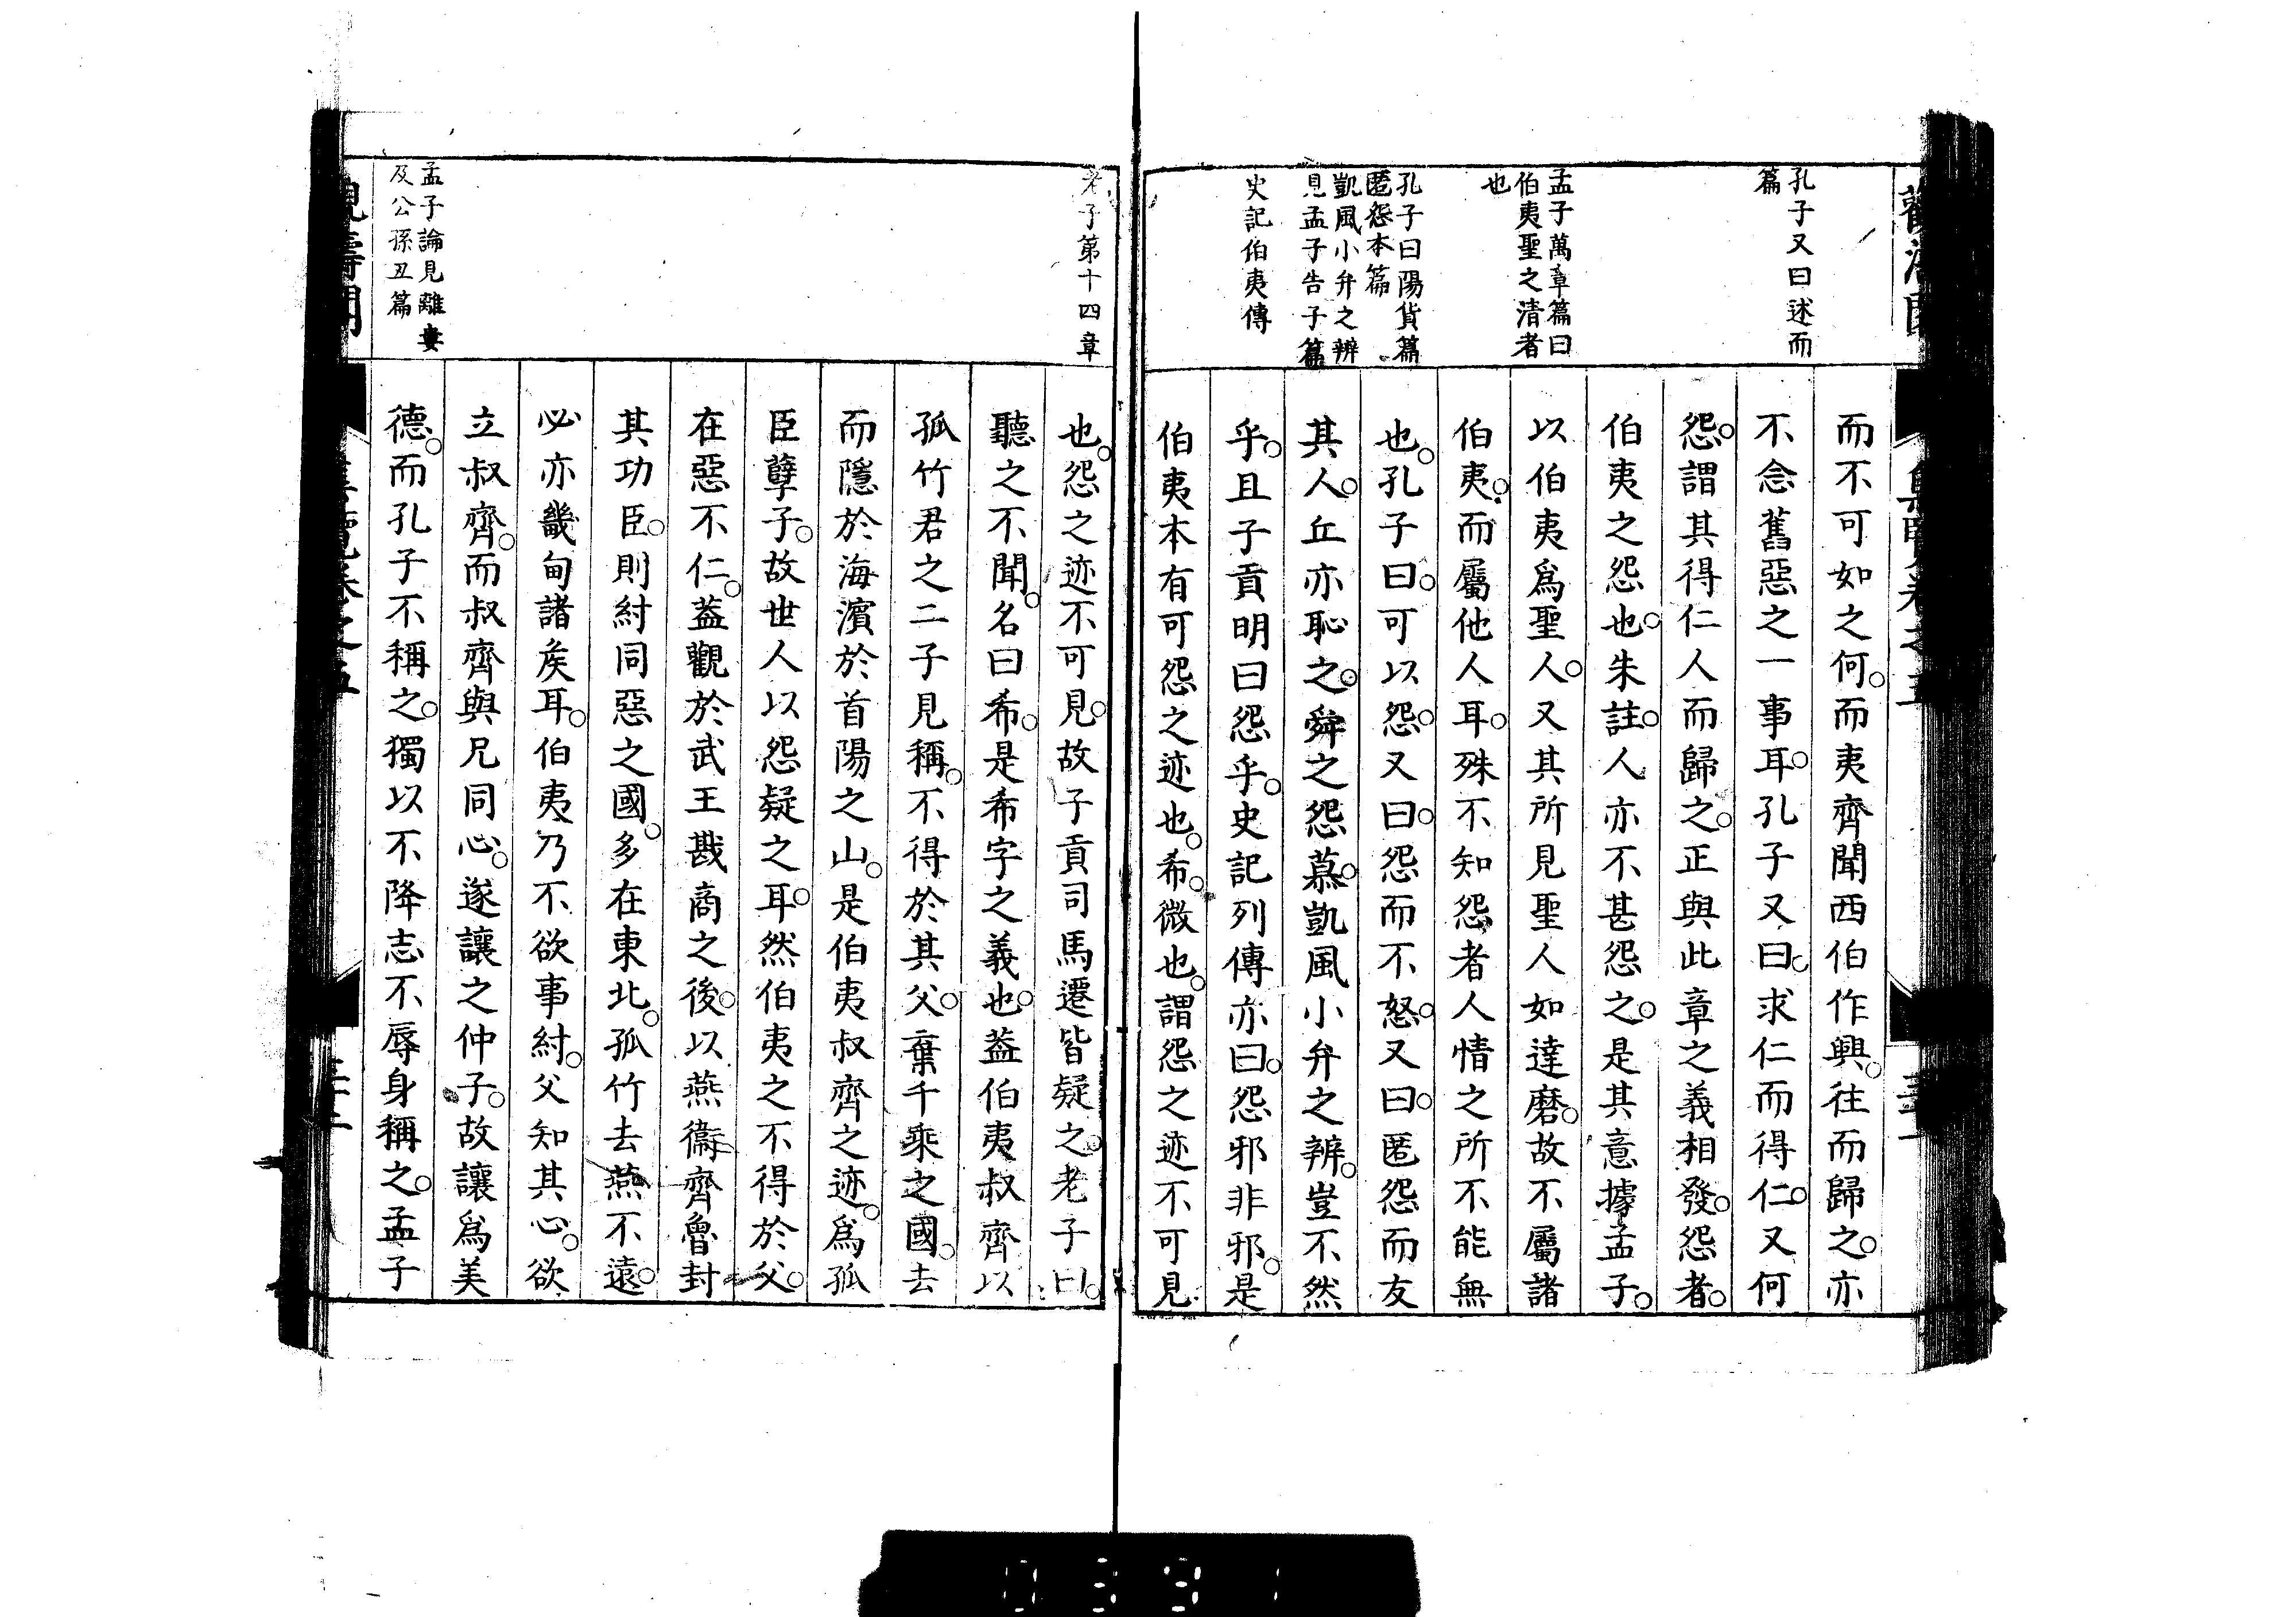 孔子又曰述而
篇
孟子萬章篇曰
伯夷聖之清者
也
孔子曰陽貨篇
匿怨本篇
凱風小弁之辨
見孟子告子篇
史記伯夷傳
而不可如之何。而夷齊聞西伯作興。往而歸之。亦
不念舊惡之一事耳。孔子又曰。求仁而得仁。又何
怨。謂其得仁人而歸之。正與此章之義相發。怨者。
伯夷之怨也。朱註。人亦不甚怨之。是其意據孟子。
以伯夷爲聖人。又其所見聖人如達磨。故不屬諸
伯夷。而屬他人耳。殊不知怨者人情之所不能無
也。孔子曰。可以怨。又曰。怨而不怒。又曰。匿怨而友
其人。丘亦恥之。舜之怨慕。凱風小弁之辨。豈不然
乎。且子貢明曰怨乎。史記列傳亦曰。怨邪非邪。是
伯夷本有可怨之迹也。希。微也。謂怨之迹不可見
老子第十四章
孟子論見離婁
及公孫丑篇
也。怨之迹不可見。故子貢司馬遷皆疑之。老子曰。
聽之不聞。名曰希。是希字之義也。葢伯夷叔齊以
孤竹君之二子見稱。不得於其父。棄千乘之國。去
而隱於海濱於首陽之山。是伯夷叔齊之迹。爲孤
臣孽子。故世人以怨疑之耳。然伯夷之不得於父。
在惡不仁。葢觀於武王戡商之後。以燕衞齊魯封
其功臣。則紂同惡之國。多在東北。孤竹去燕不遠。
必亦畿甸諸矦耳。伯夷乃不欲事紂。父知其心。欲
立叔齊。而叔齊與兄同心。遂讓之仲子。故讓爲美
德。而孔子不稱之。獨以不降志不辱身稱之。孟子
0391